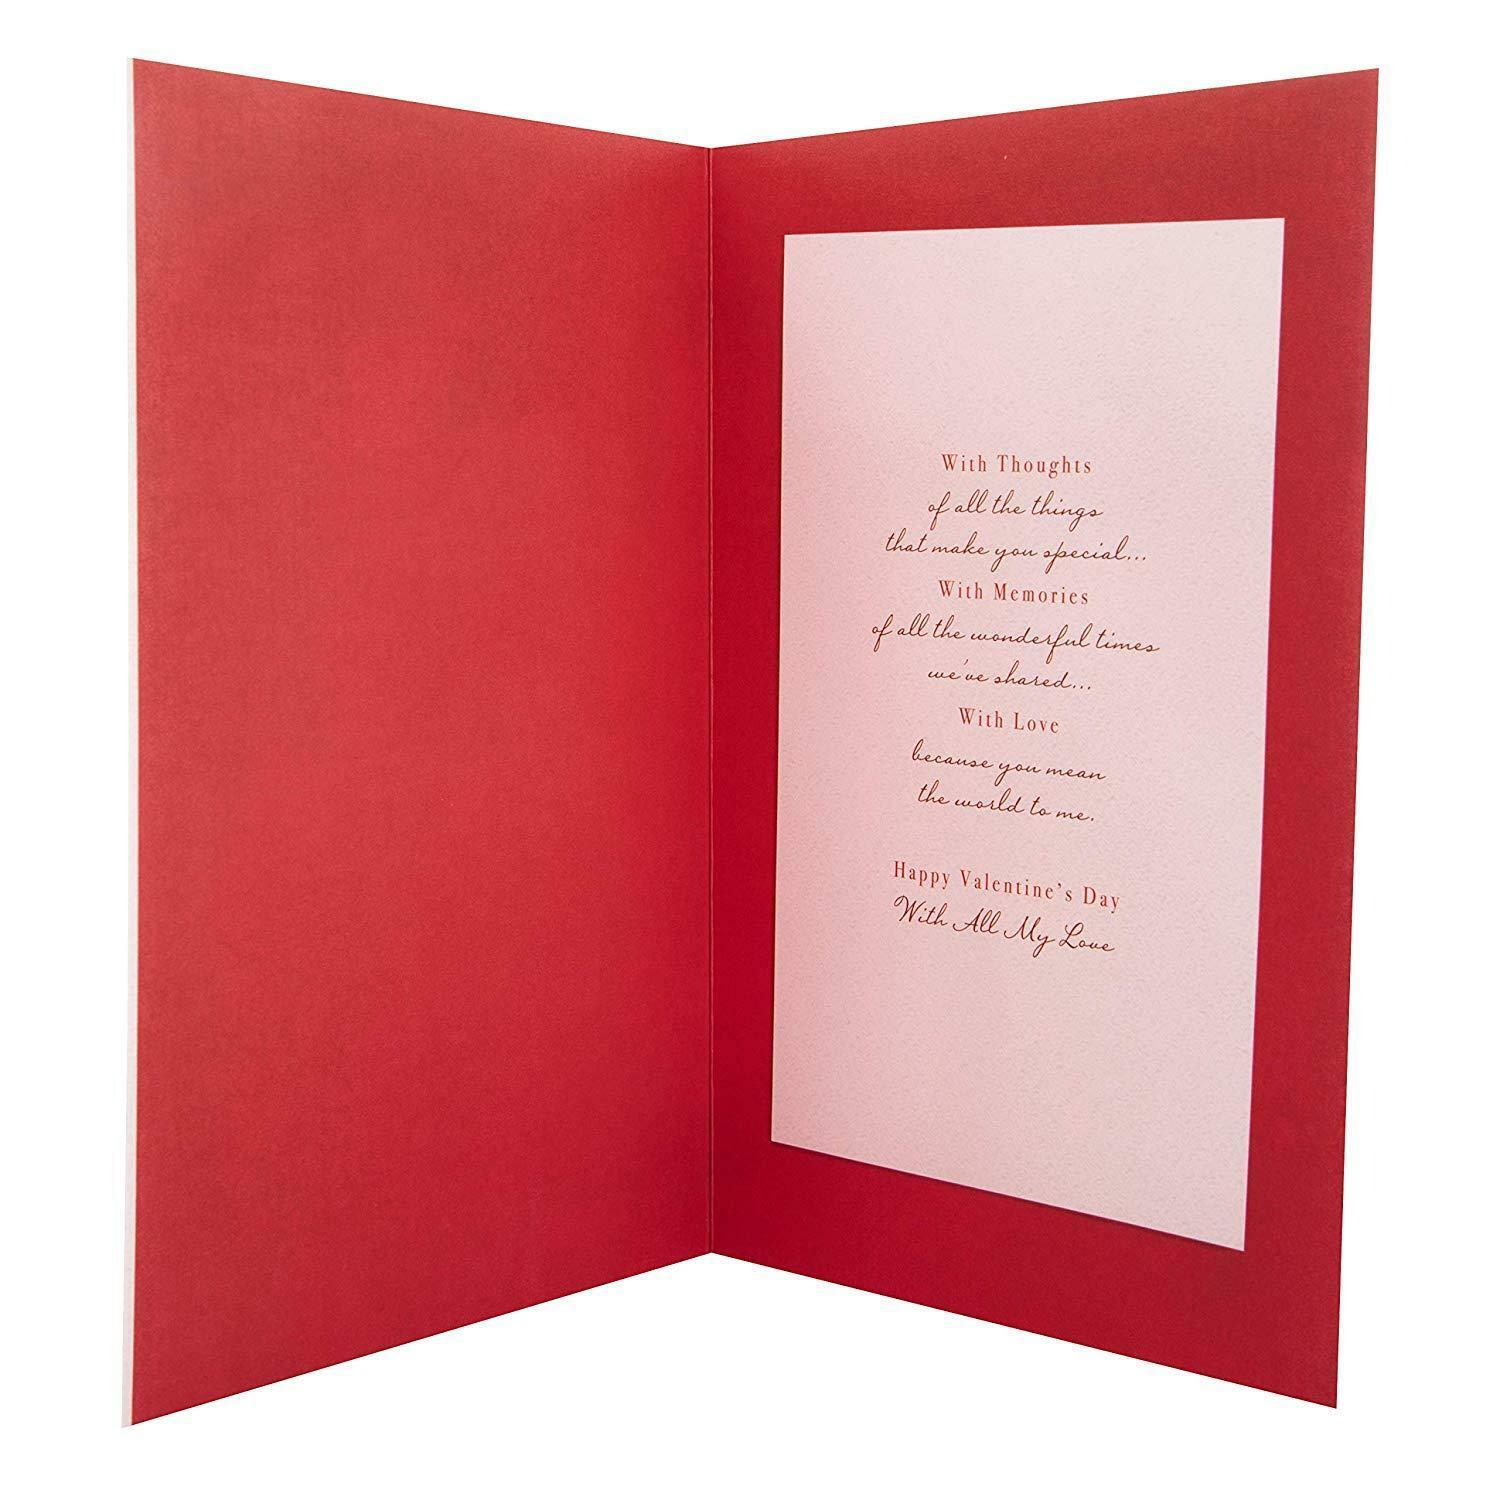 With Thoughts
of all the things
that make you special...
With Memories
of all the wonderful times
we've shared...
With Love
because you mean
the world to me.
Happy Valentine's Day
With All My Love